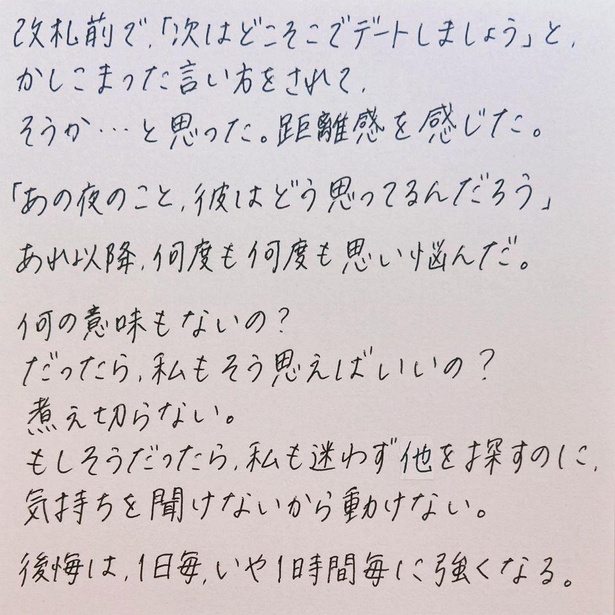 改札前で、「次はどこそこでデートしましょう」と、
かしこまった言い方をされて、
そうか…と思った。距離感を感じた。
「あの夜のこと、彼はどう思ってるんだろう」
あれ以降、何度も何度も思い悩んだ。
何の意味もないの？
だったら、私もそう思えばいいの？
煮え切らない。
もしそうだったら、私も迷わず他を探すのに、
気持ちを聞けないから動けない。
後悔は、1日毎、いや1時間毎に強くなる。